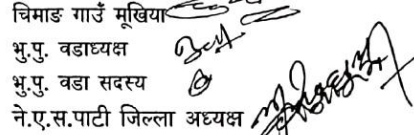 चिमाङ गाउँ मूखिया
भु.पु. वडाध्यक्ष
भु.पु. वडा सदस्य
ने.ए.स.पाटी जिल्ला अध्यक्ष